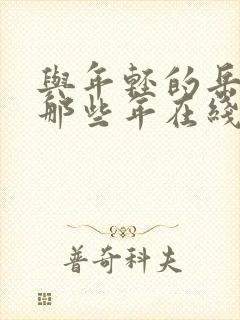 與年輕的岳
那些年在綫
普奇科夫